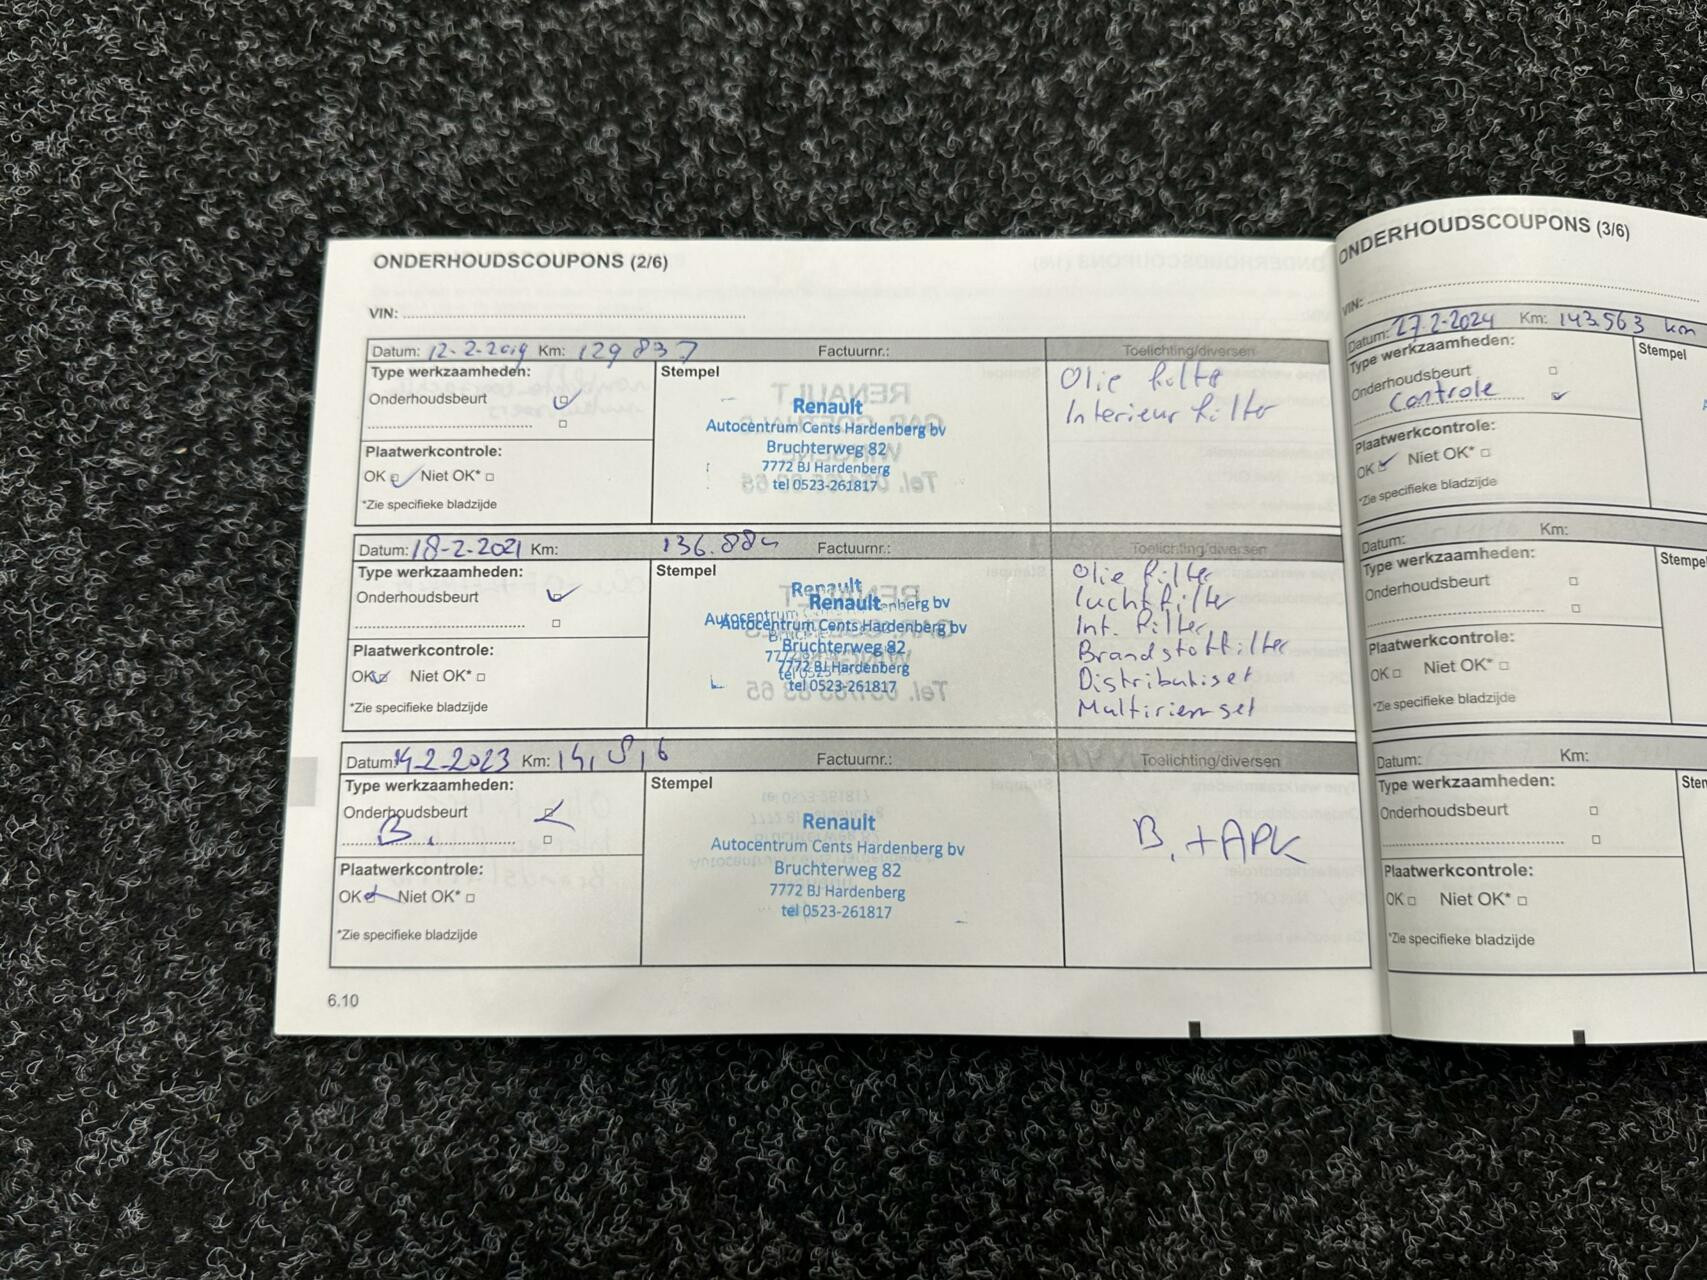 ONDERHOUDSCOUPONS (2/6)
VIN:
Datum: 12-2-2019 Km: 129 837 Factuurnr.: Toelichting/diversen
Type werkzaamheden:
Onderhoudsbeurt
Plaatwerkcontrole:
OK Niet OK*
*Zie specifieke bladzijde
Stempel
Renault
Autocentrum Cents Hardenberg bv
Bruchterweg 82
7772 BJ Hardenberg
tel 0523-261817
Olie filter
Interieur filter
Datum: 18-2-2021 Km: 136.884 Factuurnr.: Toelichting/diversen
Type werkzaamheden:
Onderhoudsbeurt
Plaatwerkcontrole:
OK Niet OK*
*Zie specifieke bladzijde
Stempel
Renault
Renault
Autocentrum Cents Hardenberg bv
Bruchterweg 82
7772 BJ Hardenberg
tel 0523-261817
Olie filter
luchtfilter
Int. filter
Brandstoffilter
Distributieset
Multiriemset
Datum: 14-2-2023 Km: Factuurnr.: Toelichting/diversen
Type werkzaamheden:
Onderhoudsbeurt
B.
Plaatwerkcontrole:
OK Niet OK*
*Zie specifieke bladzijde
Stempel
Renault
Autocentrum Cents Hardenberg bv
Bruchterweg 82
7772 BJ Hardenberg
tel 0523-261817
B. + APK
6.10
ONDERHOUDSCOUPONS (3/6)
VIN:
Datum: 27-2-2024 Km: 143.563 km
Type werkzaamheden:
Onderhoudsbeurt
Controle
Plaatwerkcontrole:
OK Niet OK*
*Zie specifieke bladzijde
Stempel
Datum: Km:
Type werkzaamheden:
Onderhoudsbeurt
Plaatwerkcontrole:
OK Niet OK*
*Zie specifieke bladzijde
Stempe
Datum: Km:
Type werkzaamheden:
Onderhoudsbeurt
Plaatwerkcontrole:
OK Niet OK*
*Zie specifieke bladzijde
Sten